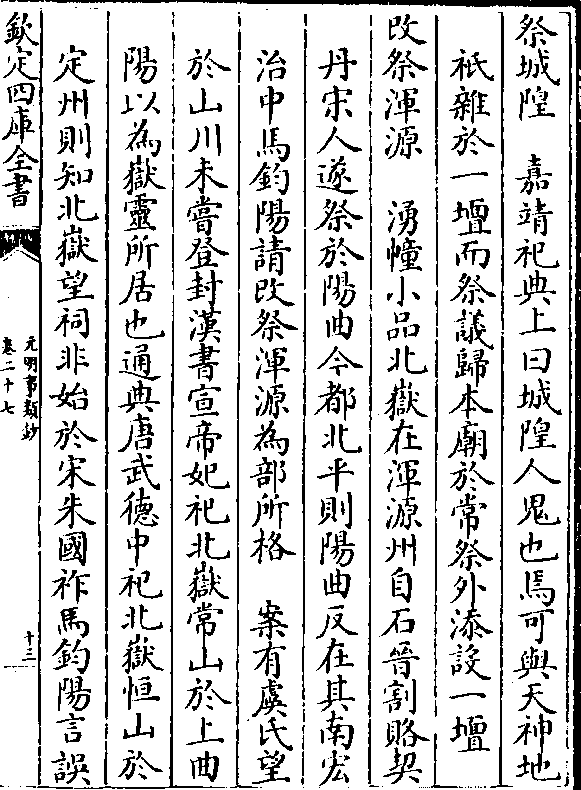 祭城隍　嘉靖祀典上曰城隍人鬼也焉可與天神地
祇雜於一壇而祭議歸本廟於常祭外添設一壇
改祭渾源　湧幢小品北嶽在渾源州自石晉割賂契
丹宋人遂祭於陽曲今都北平則陽曲反在其南宏
治中馬鈞陽請改祭渾源為部所格　案有虞氏望
於山川未嘗登封漢書宣帝妃祀北嶽常山於上曲
陽以為嶽靈所居也通典唐武德中祀北嶽恒山於
定州則知北嶽望祠非始於宋朱國祚馬鈞陽言誤
欽定四庫全書
元明事類鈔
卷二十七
十三